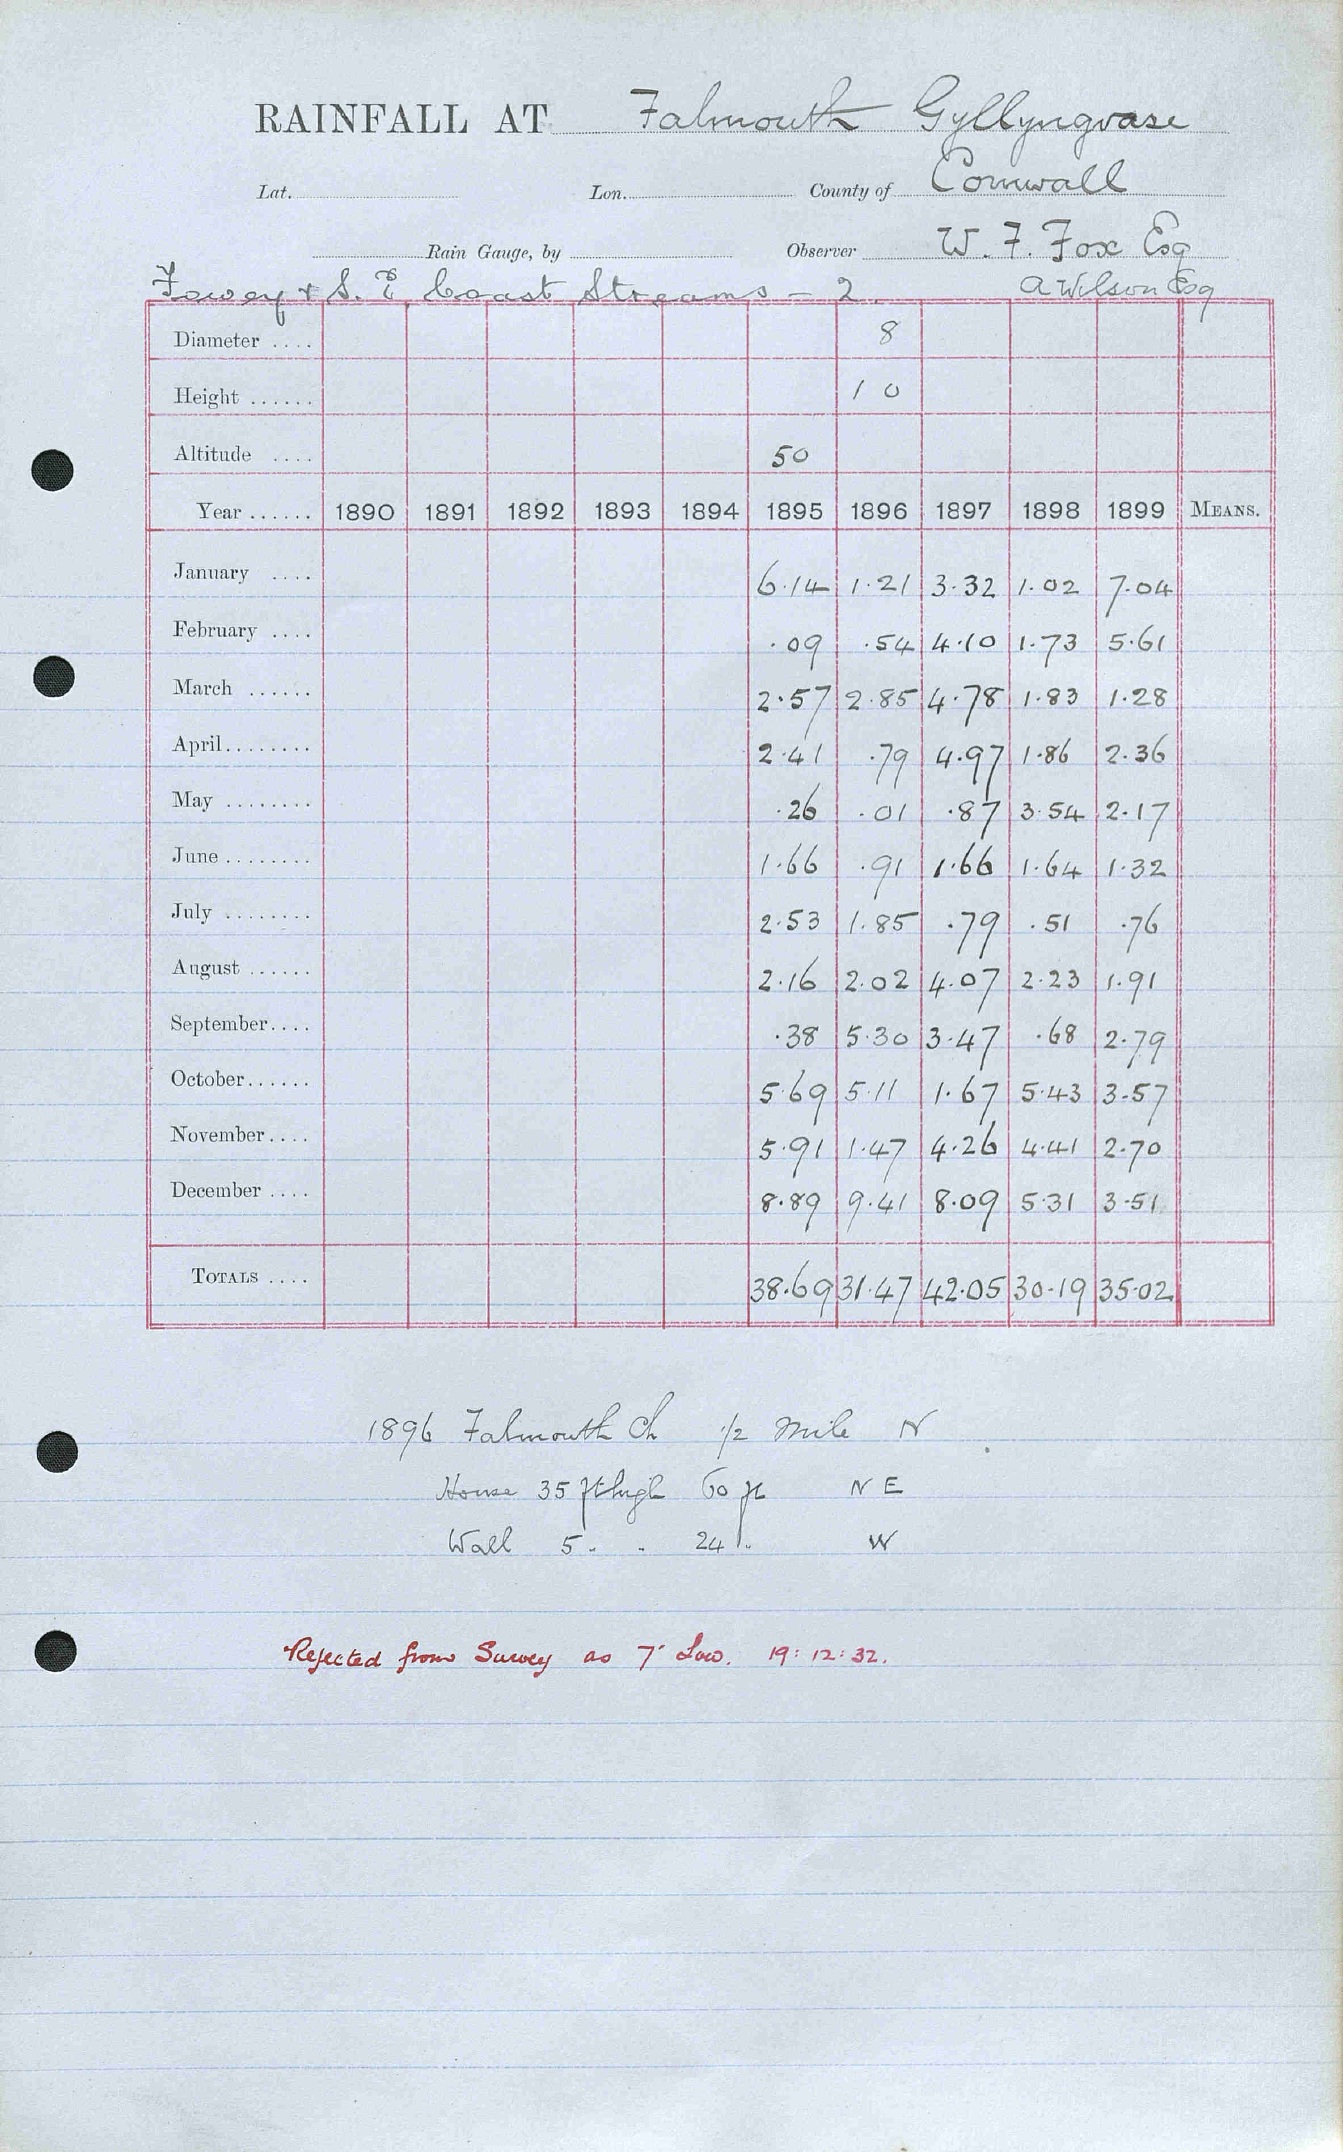 RAINFALL AT Falmouth Gyllyngvase
Lat. Lon. County of Cornwall
Rain Gauge, by Observer W. F. Fox Esq
Fowey & S. E. Coast Streams - 2. A Wilson Esq
Diameter .... 8
Height ...... 1 0
Altitude .... 50
Year ...... 1890 1891 1892 1893 1894 1895 1896 1897 1898 1899 MEANS.
January .... 6.14 1.21 3.32 1.02 7.04
February .... .09 .54 4.10 1.73 5.61
March ...... 2.57 2.85 4.78 1.83 1.28
April........ 2.41 .79 4.97 1.86 2.36
May ........ .26 .01 .87 3.54 2.17
June ........ 1.66 .91 1.66 1.64 1.32
July ........ 2.53 1.85 .79 .51 .76
August ...... 2.16 2.02 4.07 2.23 1.91
September.... .38 5.30 3.47 .68 2.79
October...... 5.69 5.11 1.67 5.43 3.57
November.... 5.91 1.47 4.26 4.41 2.70
December .... 8.89 9.41 8.09 5.31 3.51
TOTALS .... 38.69 31.47 42.05 30.19 35.02
1896 Falmouth Ch 1/2 Mile N
House 35 ft high 60 ft N E
Wall 5 " " 24 " W
Rejected from Survey as 7" Low. 19:12:32.